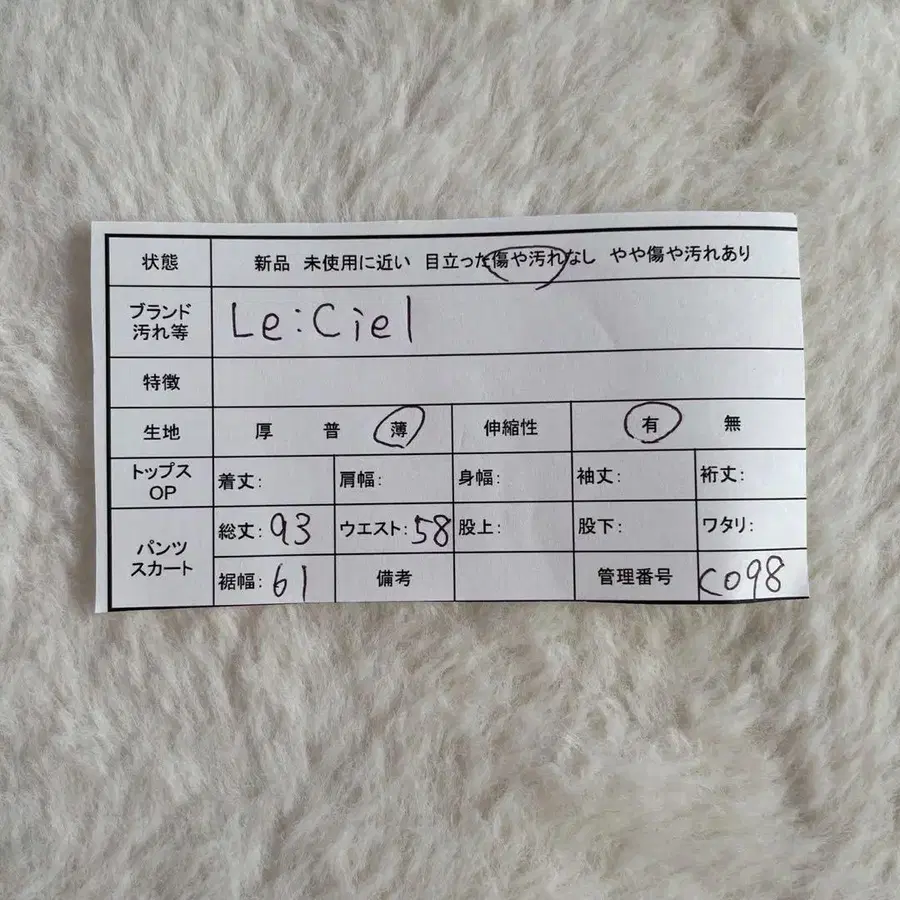 状態 新品 未使用に近い 目立った傷や汚れなし やや傷や汚れあり
ブランド
汚れ等 Le:Ciel
特徴
生地 厚 普 薄 伸縮性 有 無
トップス
OP 着丈: 肩幅: 身幅: 袖丈: 裄丈:
パンツ
スカート 総丈: 93 ウエスト: 58 股上: 股下: ワタリ:
裾幅: 61 備考 管理番号 C098